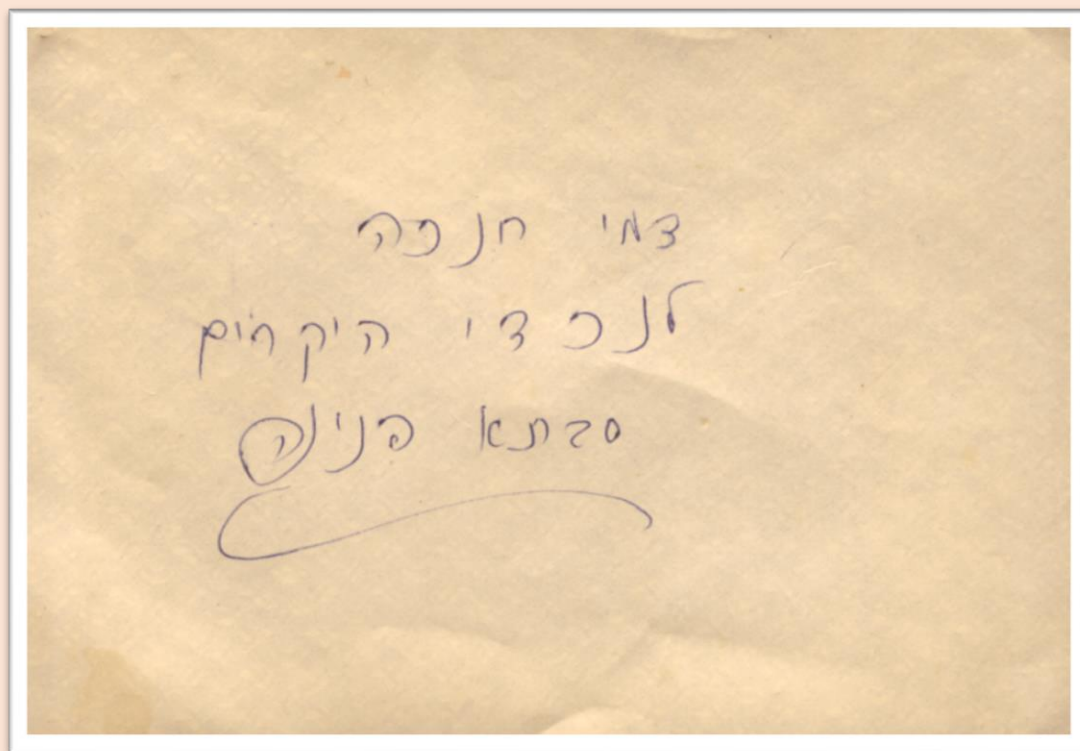 דמי חנכה
לנכדי היקרים
סבתא פנינה